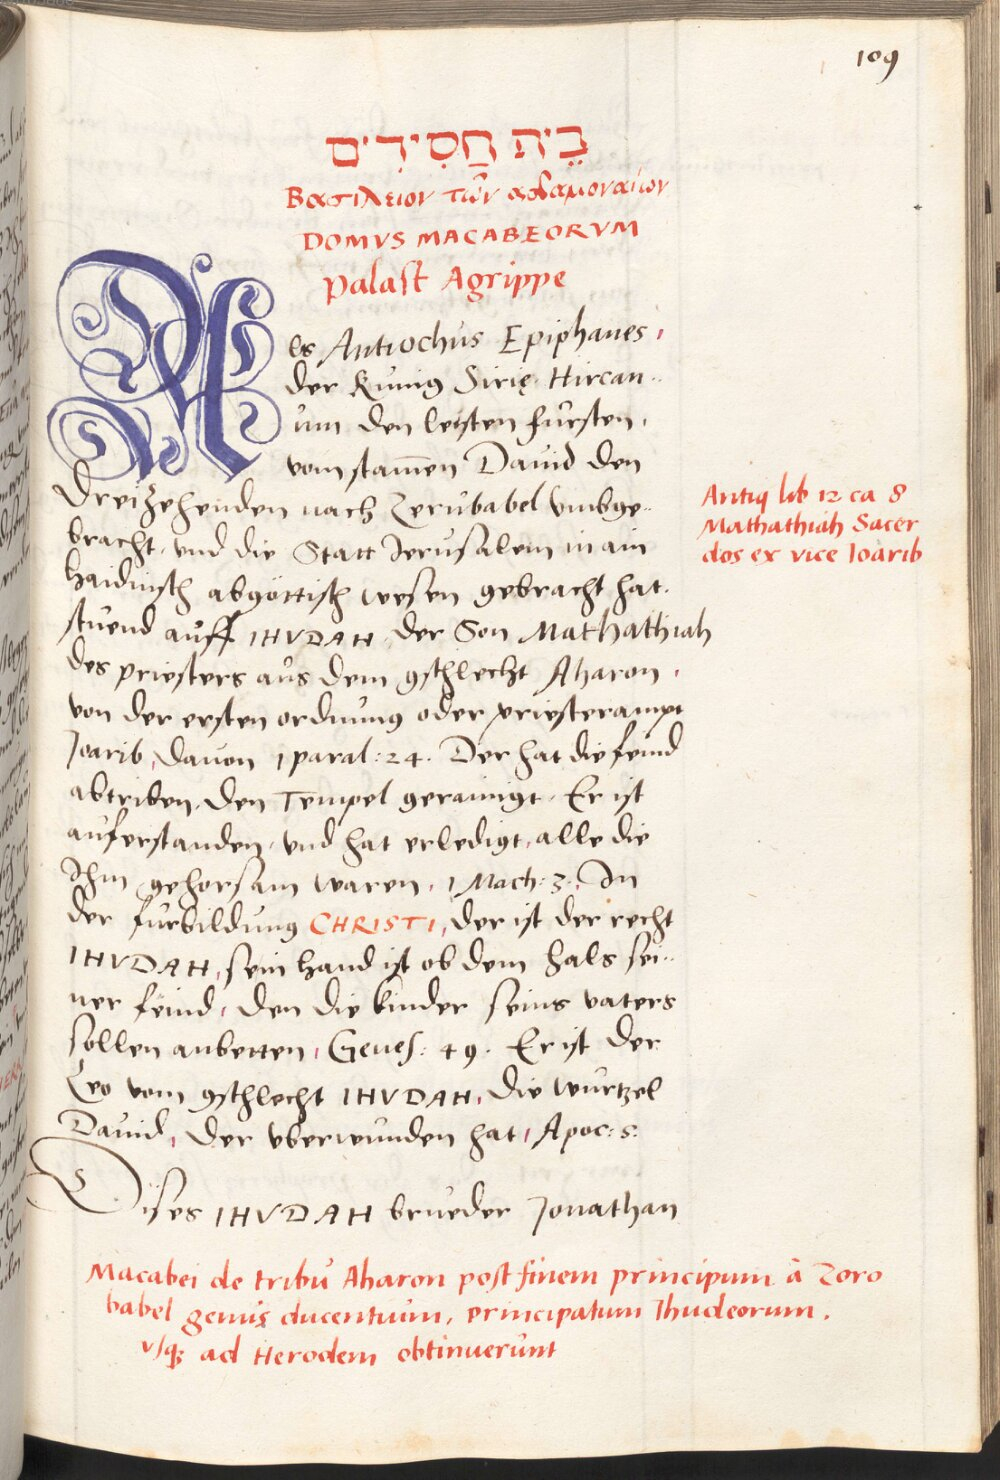 109
בֵית חֲסִידִים
Βασιλειον τῶν ασσαμοναίων
DOMVS MACABEORVM
Palast Agrippe
Als Antiochus Epiphanes,
der Kunig Sirię Hircan..
um den letsten fursten,
vom stam̄en Dauid den
dreizehenden nach Zerubabel vmbge..
bracht, vnd die Statt Jerusalem in ain
haidnisch abgöttisch wesen gebracht hat.
stuend auff IHVDAH der Son Mathathiah
des priesters aus dem gschlecht Aharon,
von der ersten ordnung oder priesterampt
Joarib, dauon 1 paral: 24. Der hat die feind
abtriben, den Tempel gerainigt. Er ist
auferstanden, vnd hat erledigt, alle die
Ihm gehorsam waren, 1 Mach: 3. In
der furbildung CHRISTI, der ist der recht
IHVDAH, sein hand ist ob dem hals sei..
ner feind, den die kinder seins vaters
sollen anbetten, Genes: 49. Er ist der
Leo vom gschlecht IHVDAH, die wurtzel
Dauid, der vberwunden hat, Apoc: 5.
Dises IHVDAH brueder Jonathan
Antiq lib 12 ca 8
Mathathiah Sacer
dos ex vice Ioarib
Macabei de tribu Aharon post finem principum à Zoro
babel genus ducentium, principatum Ihudeorum.
vsq; ad Herodem obtinuerunt